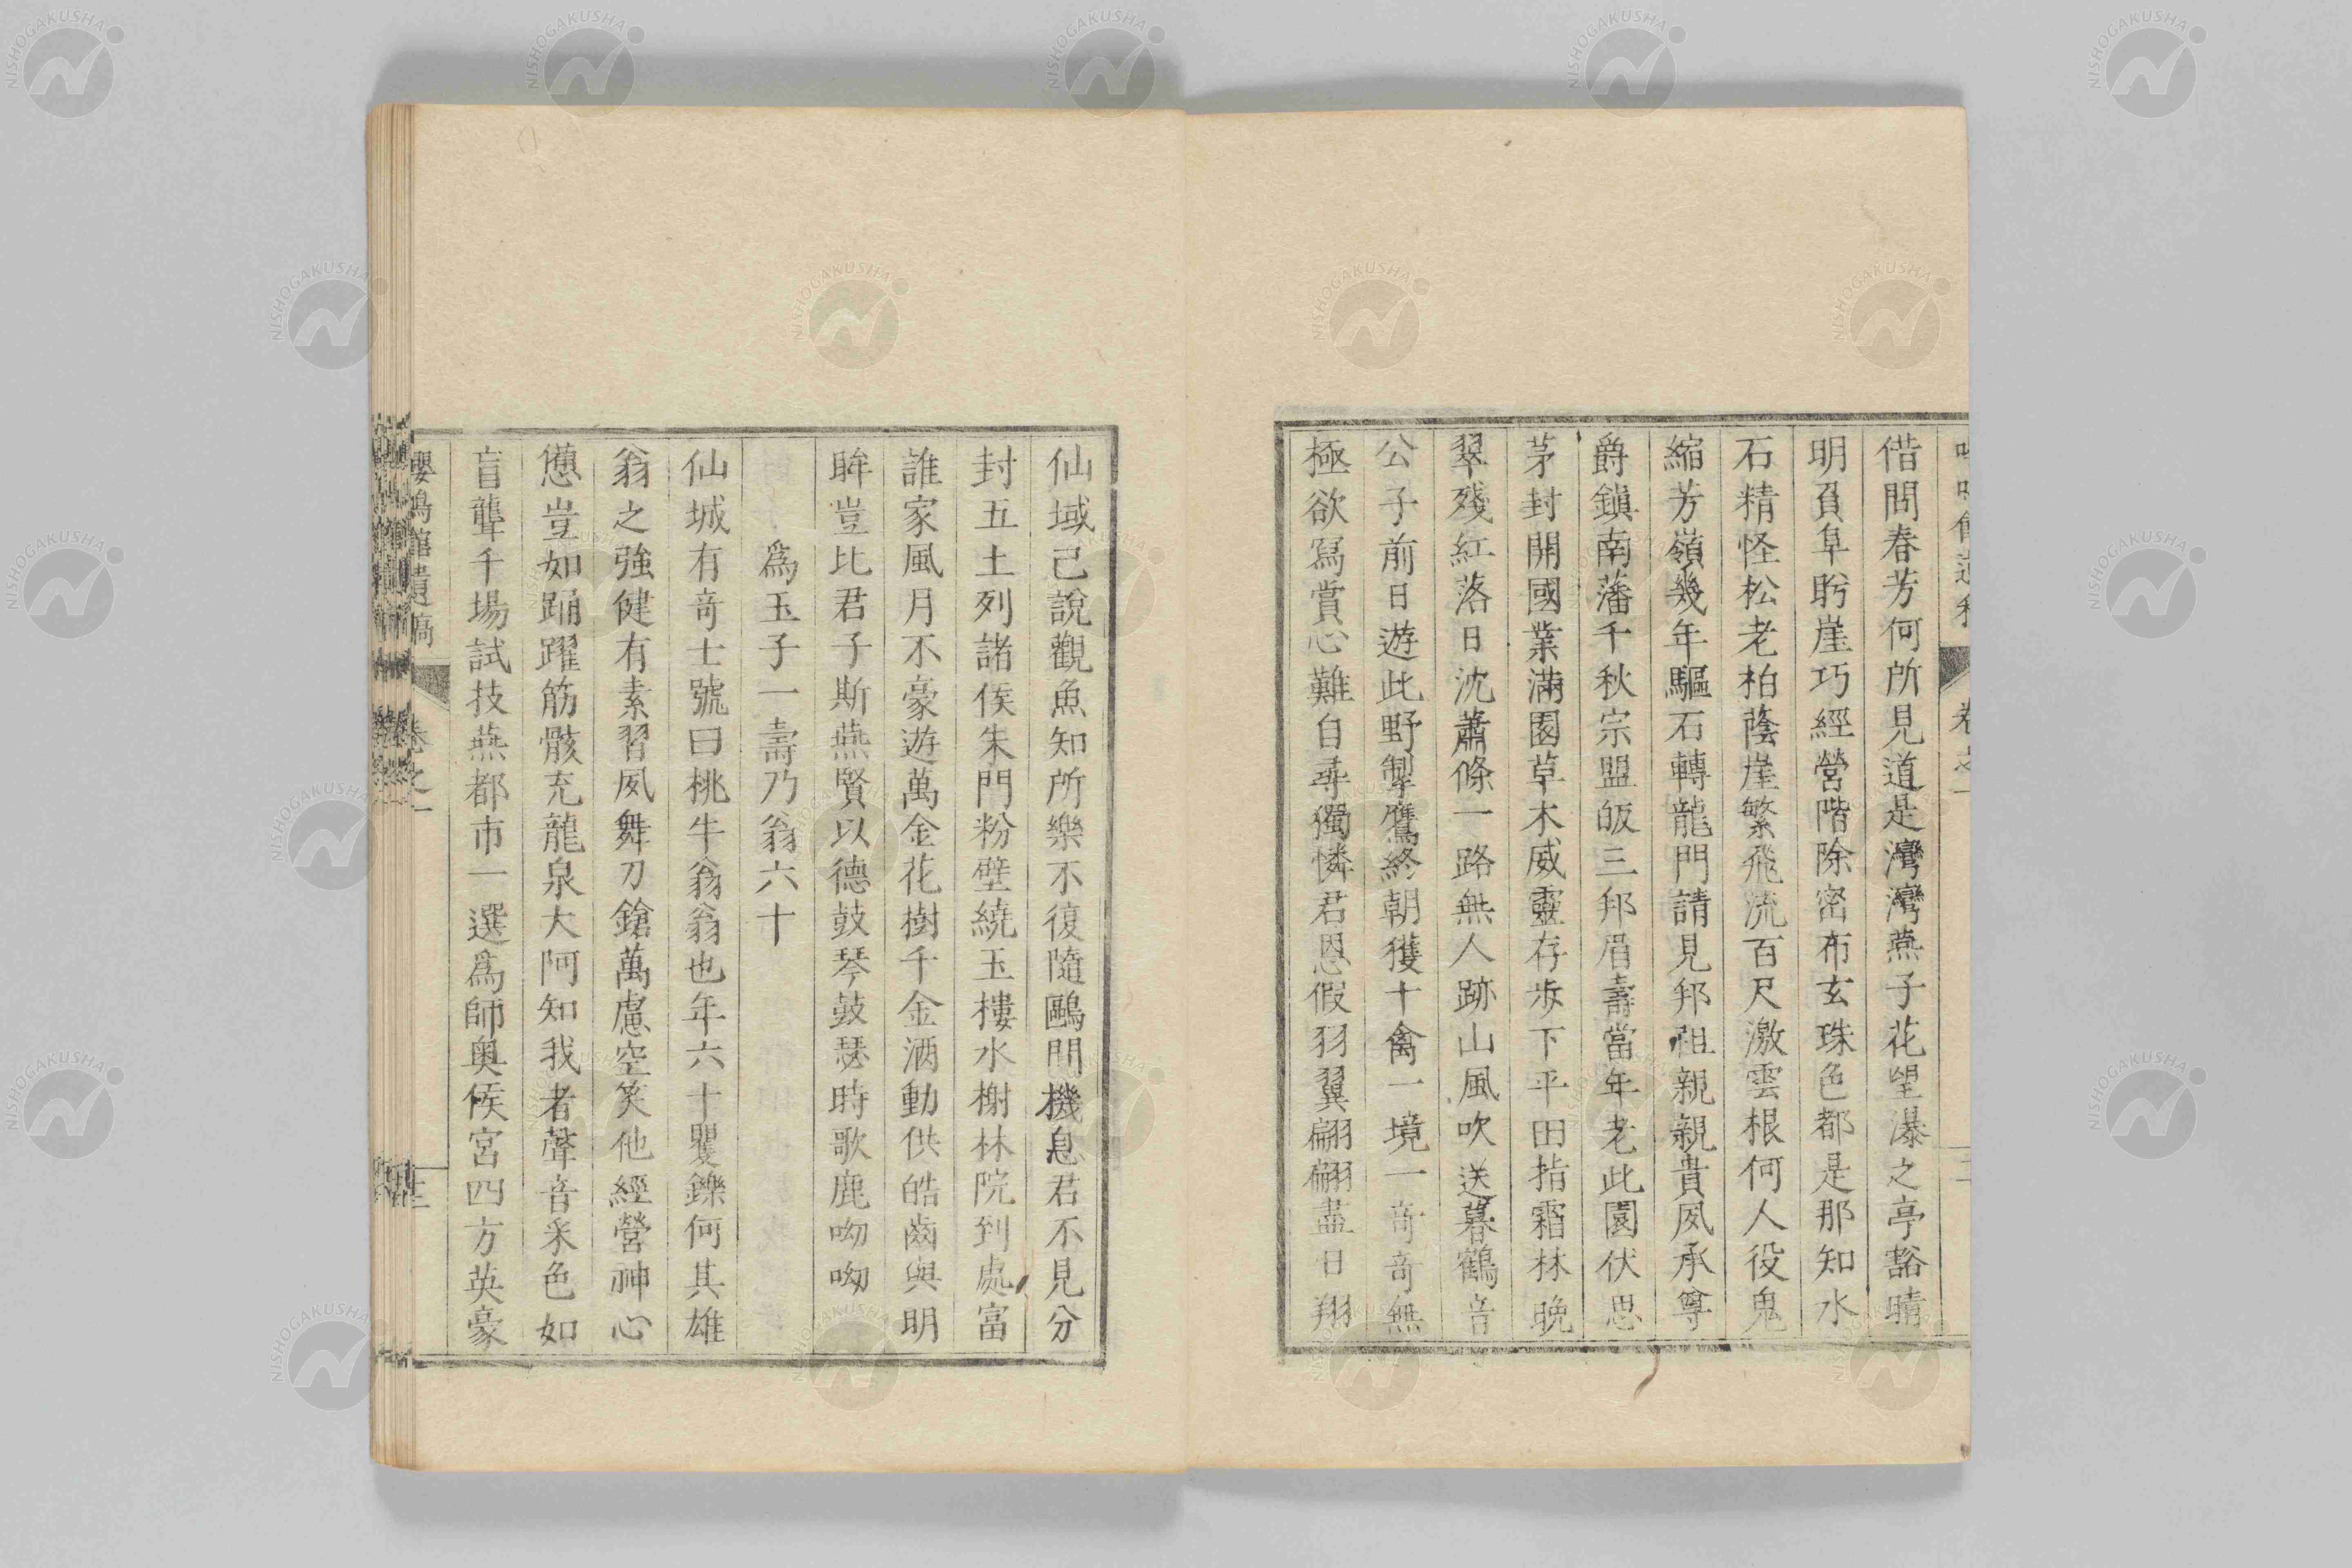 借問春芳何所見道是灣灣燕子花望瀑之亭豁晴
明負阜盻崖巧經營階除密布玄珠色都是那知水
石精怪松老柏蔭崖繁飛流百尺激雲根何人役鬼
縮芳嶺幾年驅石轉龍門請見邦祖親親貴夙承尊
爵鎮南藩千秋宗盟皈三邦眉壽當年老此園伏思
茅封開國業滿園草木威靈存步下平田指霜林晚
翠殘紅落日沈蕭條一路無人跡山風吹送暮鶴音
公子前日遊此野掣鷹終朝獲十禽一境一奇奇無
極欲寫賞心難自尋獨憐君恩假羽翼翩翩盡日翔
仙域已說觀魚知所樂不復隨鷗問機息君不見分
封五土列諸侯朱門粉壁繞玉樓水榭林院到處富
誰家風月不豪遊萬金花樹千金酒動供皓齒與明
眸豈比君子斯燕賢以德鼓琴鼓瑟時歌鹿呦呦
爲玉子一壽乃翁六十
仙城有奇士號曰桃牛翁翁也年六十矍鑠何其雄
翁之強健有素習夙舞刀鎗萬慮空笑他經營神心
憊豈如踊躍筋骸充龍泉大阿知我者聲音釆色如
盲聾千場試技燕都市一選爲師奥侯宮四方英豪
嚶鳴館遺稿 卷之一 三